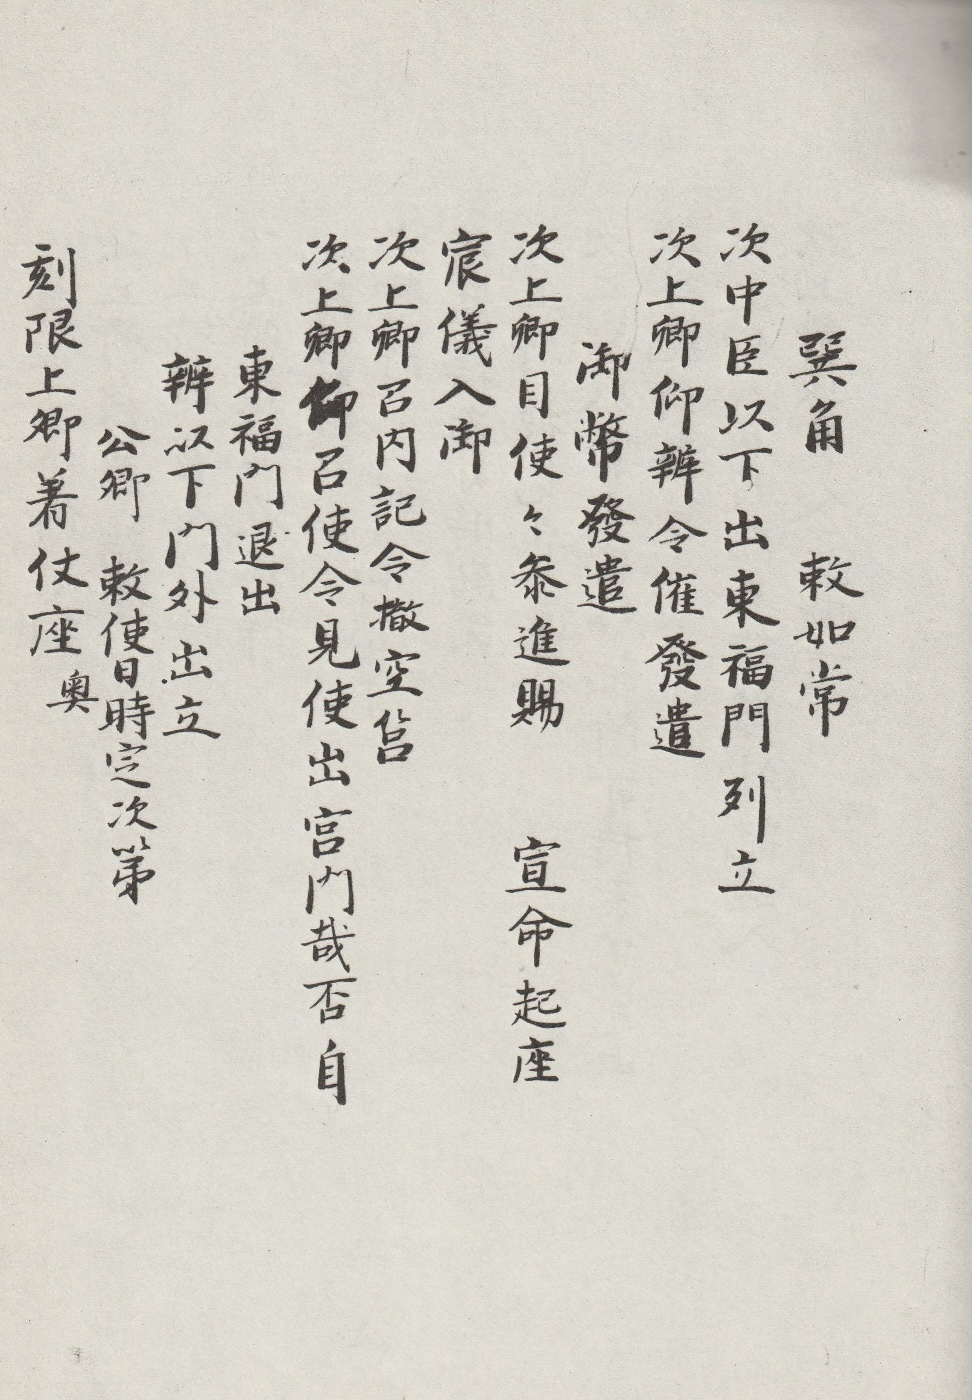 巽角　敕如常
次中臣以下出東福門列立
次上卿仰辨令催發遣
御幣發遣
次上卿目使々參進賜　宣命起座
宸儀入御
次上卿召内記令撤空筥
次上卿仰召使令見使出宮門哉否自
東福門退出
辨以下門外出立
公卿　敕使日時定次第
刻限上卿著仗座奥